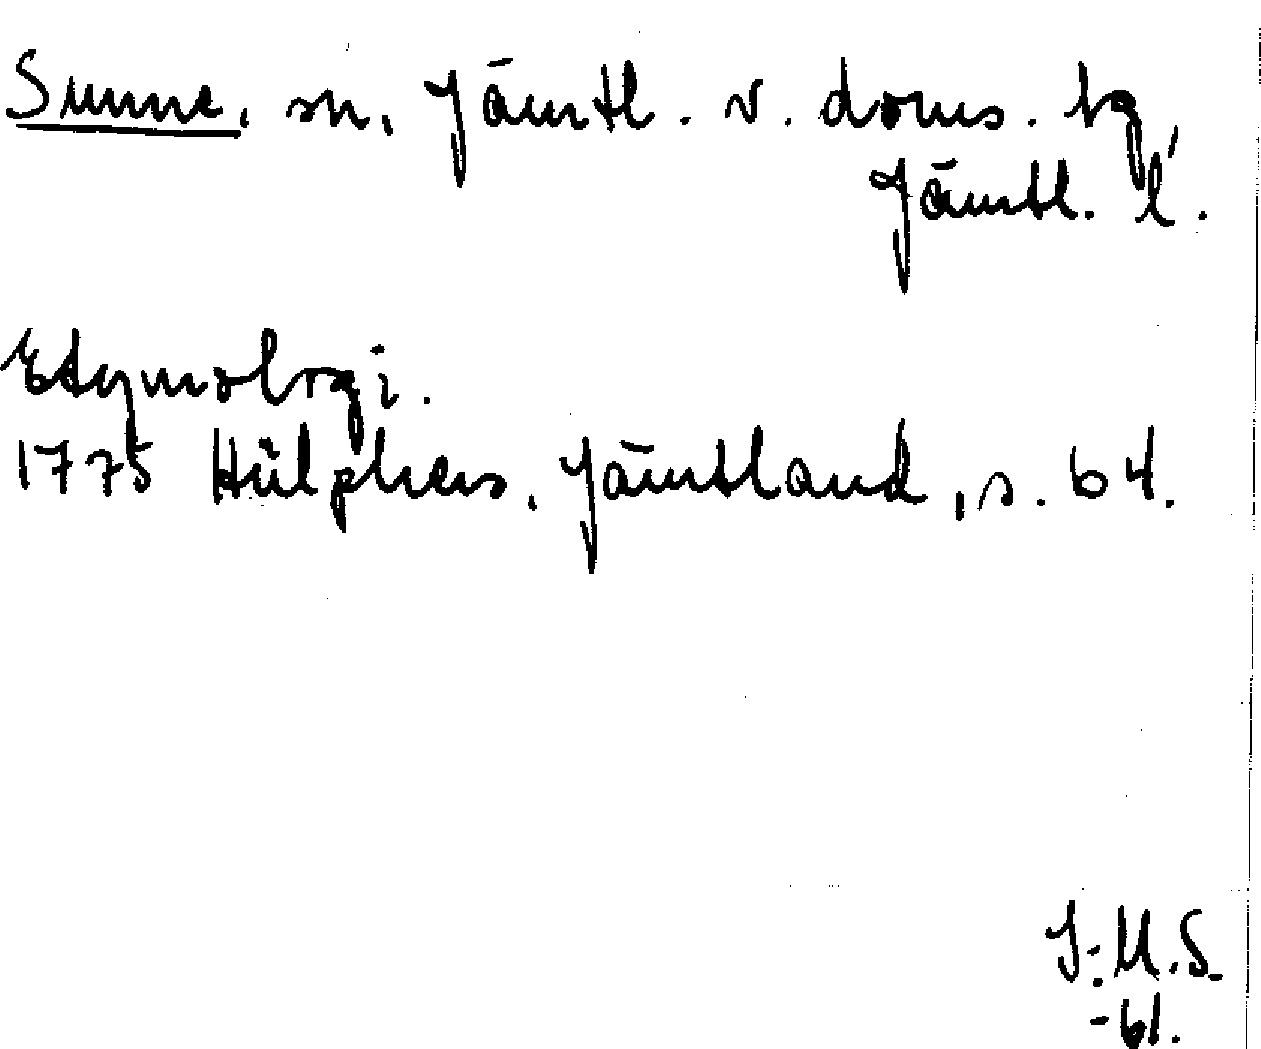 Sunne, sn, Jämtl. v. doms. bg,
Jämtl. l.
Etymologi.
1775 Hülphers, Jämtland, s. 64.
I-M.S.
-61.